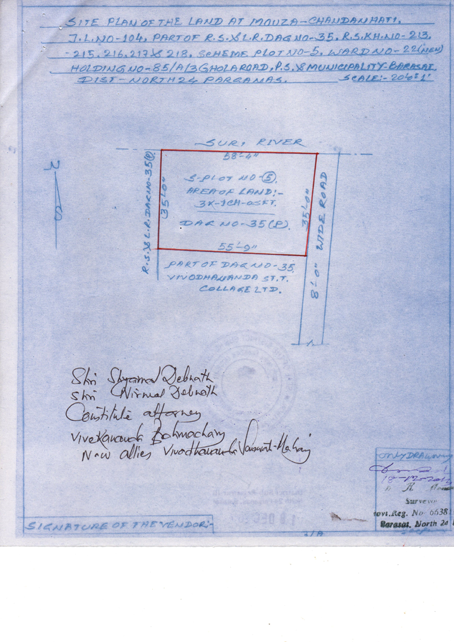 SITE PLAN OF THE LAND AT MOUZA-CHANDANHATI,
J.L.NO-104, PART OF R.S.&L.R.DAG NO-35, R.S.KH.NO-213,
-215, 216, 217 & 218, SCHEME PLOT NO-5, WARD NO-22(NEW)
HOLDING NO-85/A/3 GHOLA ROAD, P.S.& MUNICIPALITY-BARASAT
DIST-NORTH 24 PARGANAS. SCALE:-20'=1"
SURI RIVER
58'-4"
S-PLOT NO-5
AREA OF LAND:-
3K-1CH-0SFT.
DAG NO-35(P).
55'-9"
35'-0"
35'-0"
R.S.&L.R.DAG NO-35(P)
8'-0" WIDE ROAD
PART OF DAG NO-35
VIVODHANANDA ST.T.
COLLAGE LTD.
Shri Shyamal Debnath
Shri Nirmal Debnath
Constitute attorney
Vivekananda Bohmachary
New allies Vivodhananda
SIGNATURE OF THE VENDOR:-
Surveyor
Govt. Reg. No- 6638
Barasat, North 24